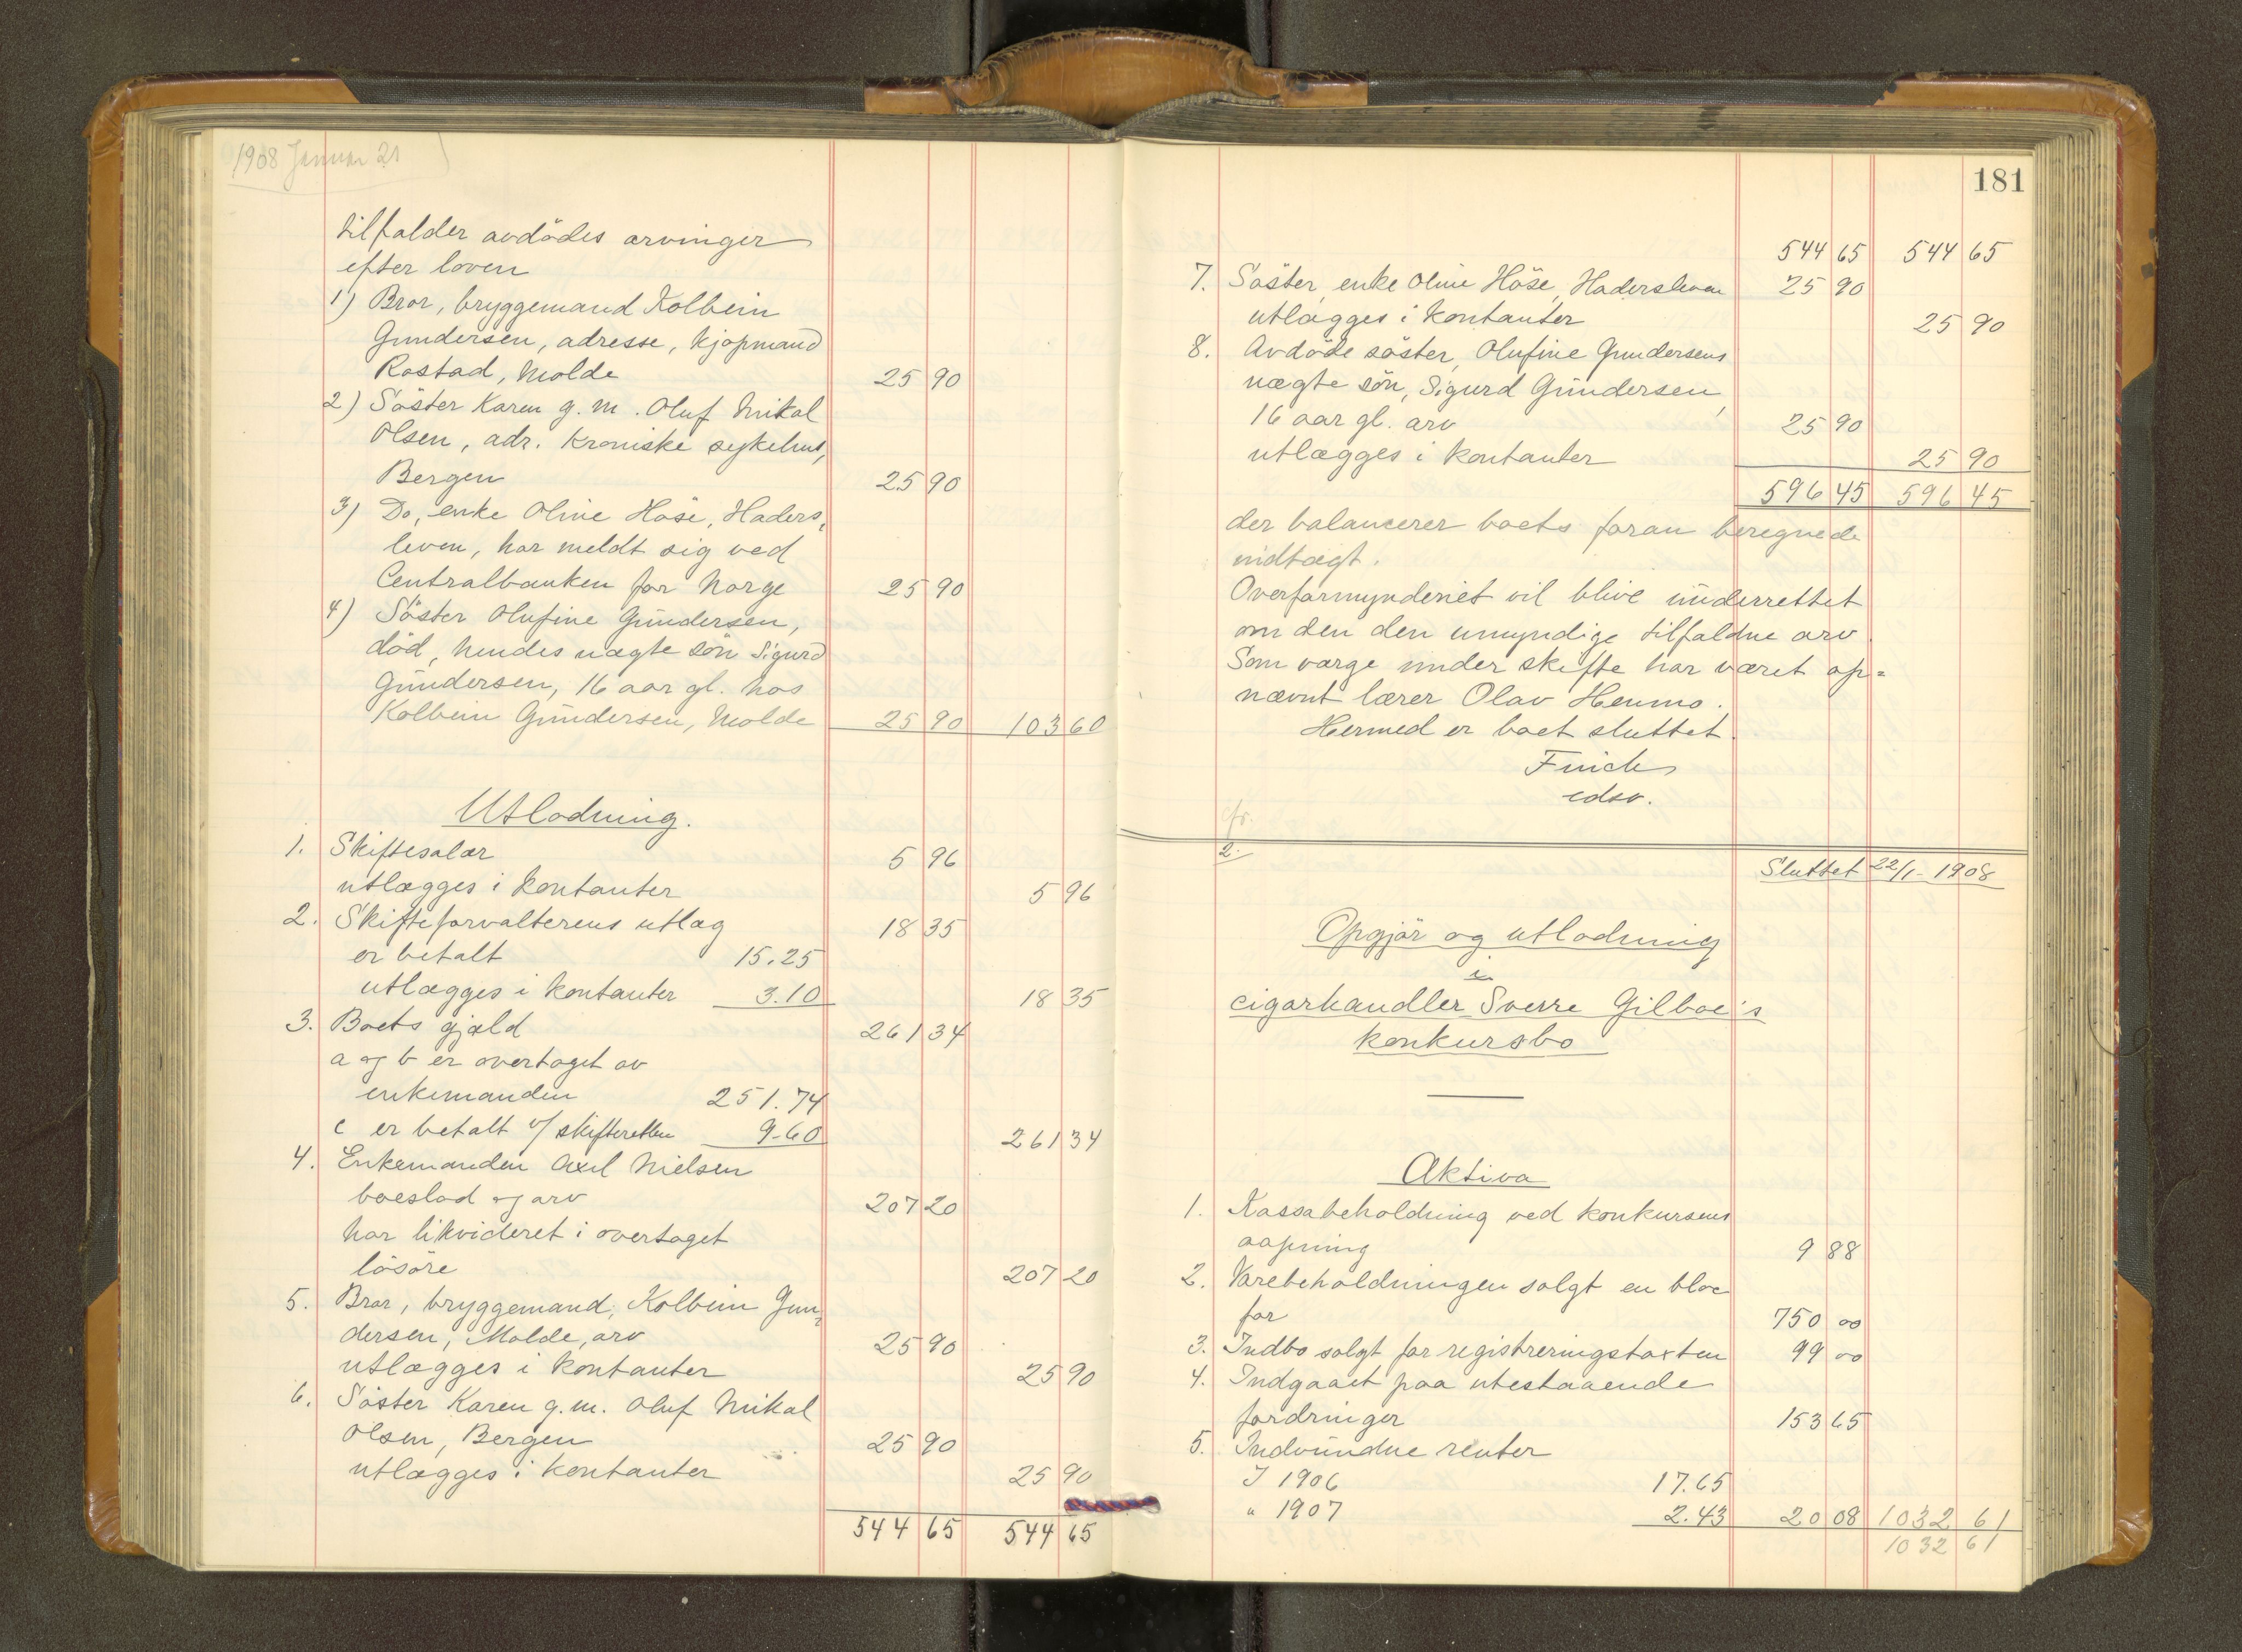 1908 Januar 21
tilfalder avdödes arvinger
efter loven
1) Bror, bryggemand Kolbein
Gundersen, adresse, kjøpmand
Rostad, Molde 25 90
2) Söster Karen g. m. Oluf Mikal
Olsen, adr. Kroniske sykehus,
Bergen 25 90
3) Do, enke Oline Höse, Haders,
leven, har meldt sig ved
Centralbanken for Norge 25 90
4) Söster Olufine Gundersen,
död, hendes uægte sön Sigurd
Gundersen, 16 aar gl. hos
Kolbein Gundersen, Molde 25 90 103 60
Utlodning.
1. Skiftesalær 5 96
utlægges i kontanter 5 96
2. Skifteforvalterens utlæg 18 35
er betalt 15.25
utlægges i kontanter 3.10 18 35
3. Boets gjæld 261 34
a og b er overtaget av
enkemanden 251.74
c er betalt v/ skifteretten 9.60 261 34
4. Enkemanden Axel Nielsen
boeslod og arv 207 20
har likvideret i overtaget
lösöre 207 20
5. Bror, bryggemand, Kolbein Gun,
dersen, Molde, arv 25 90
utlægges i kontanter 25 90
6. Söster Karen g. m. Oluf Mikal
Olsen, Bergen 25 90
utlægges i kontanter 25 90
544 65 544 65
181
544 65 544 65
7. Söster, enke Oline Höse, Hadersleven 25 90
utlægges i kontanter 25 90
8. Avdöde söster, Olufine Gundersens
uægte sön, Sigurd Gundersen,
16 aar gl. arv 25 90
utlægges i kontanter 25 90
596 45 596 45
der balancerer boets foran beregnede
indtægt.
Overformynderiet vil blive underrettet
om den den umyndige tilfaldne arv.
Som værge under skifte har været op=
nævnt lærer Olav Henmo.
Hermed er boet sluttet.
Finch
edsv.
cfr.
2.
Sluttet 22/1-1908
Opgjör og utlodning
i
cigarhandler Sverre Gilboe's
konkursbo
Aktiva
1. Kassabeholdning ved konkursens
aapning 9 88
2. Varebeholdningen solgt en bloc
for 750 00
3. Indbo solgt for registreringstaxten 99 00
4. Indgaaet paa utestaaende
fordringer 153 65
5. Indvundne renter
I 1906 17.65
" 1907 2.43 20 08 1032 61
1032 61